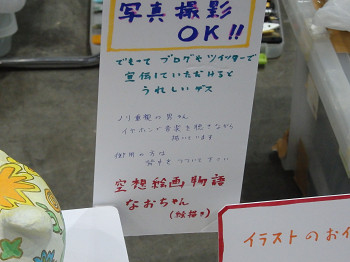 写真撮影
OK!!
でもって ブログや ツイッターで
宣伝していただけると
うれしいデス
ノリ重視の男ゆえ
イヤホンで音楽を聴きながら
描いています
御用の方は
背中をつついて下さい
空想絵画物語
なおちゃん
(絵描き)
イラストのお仕